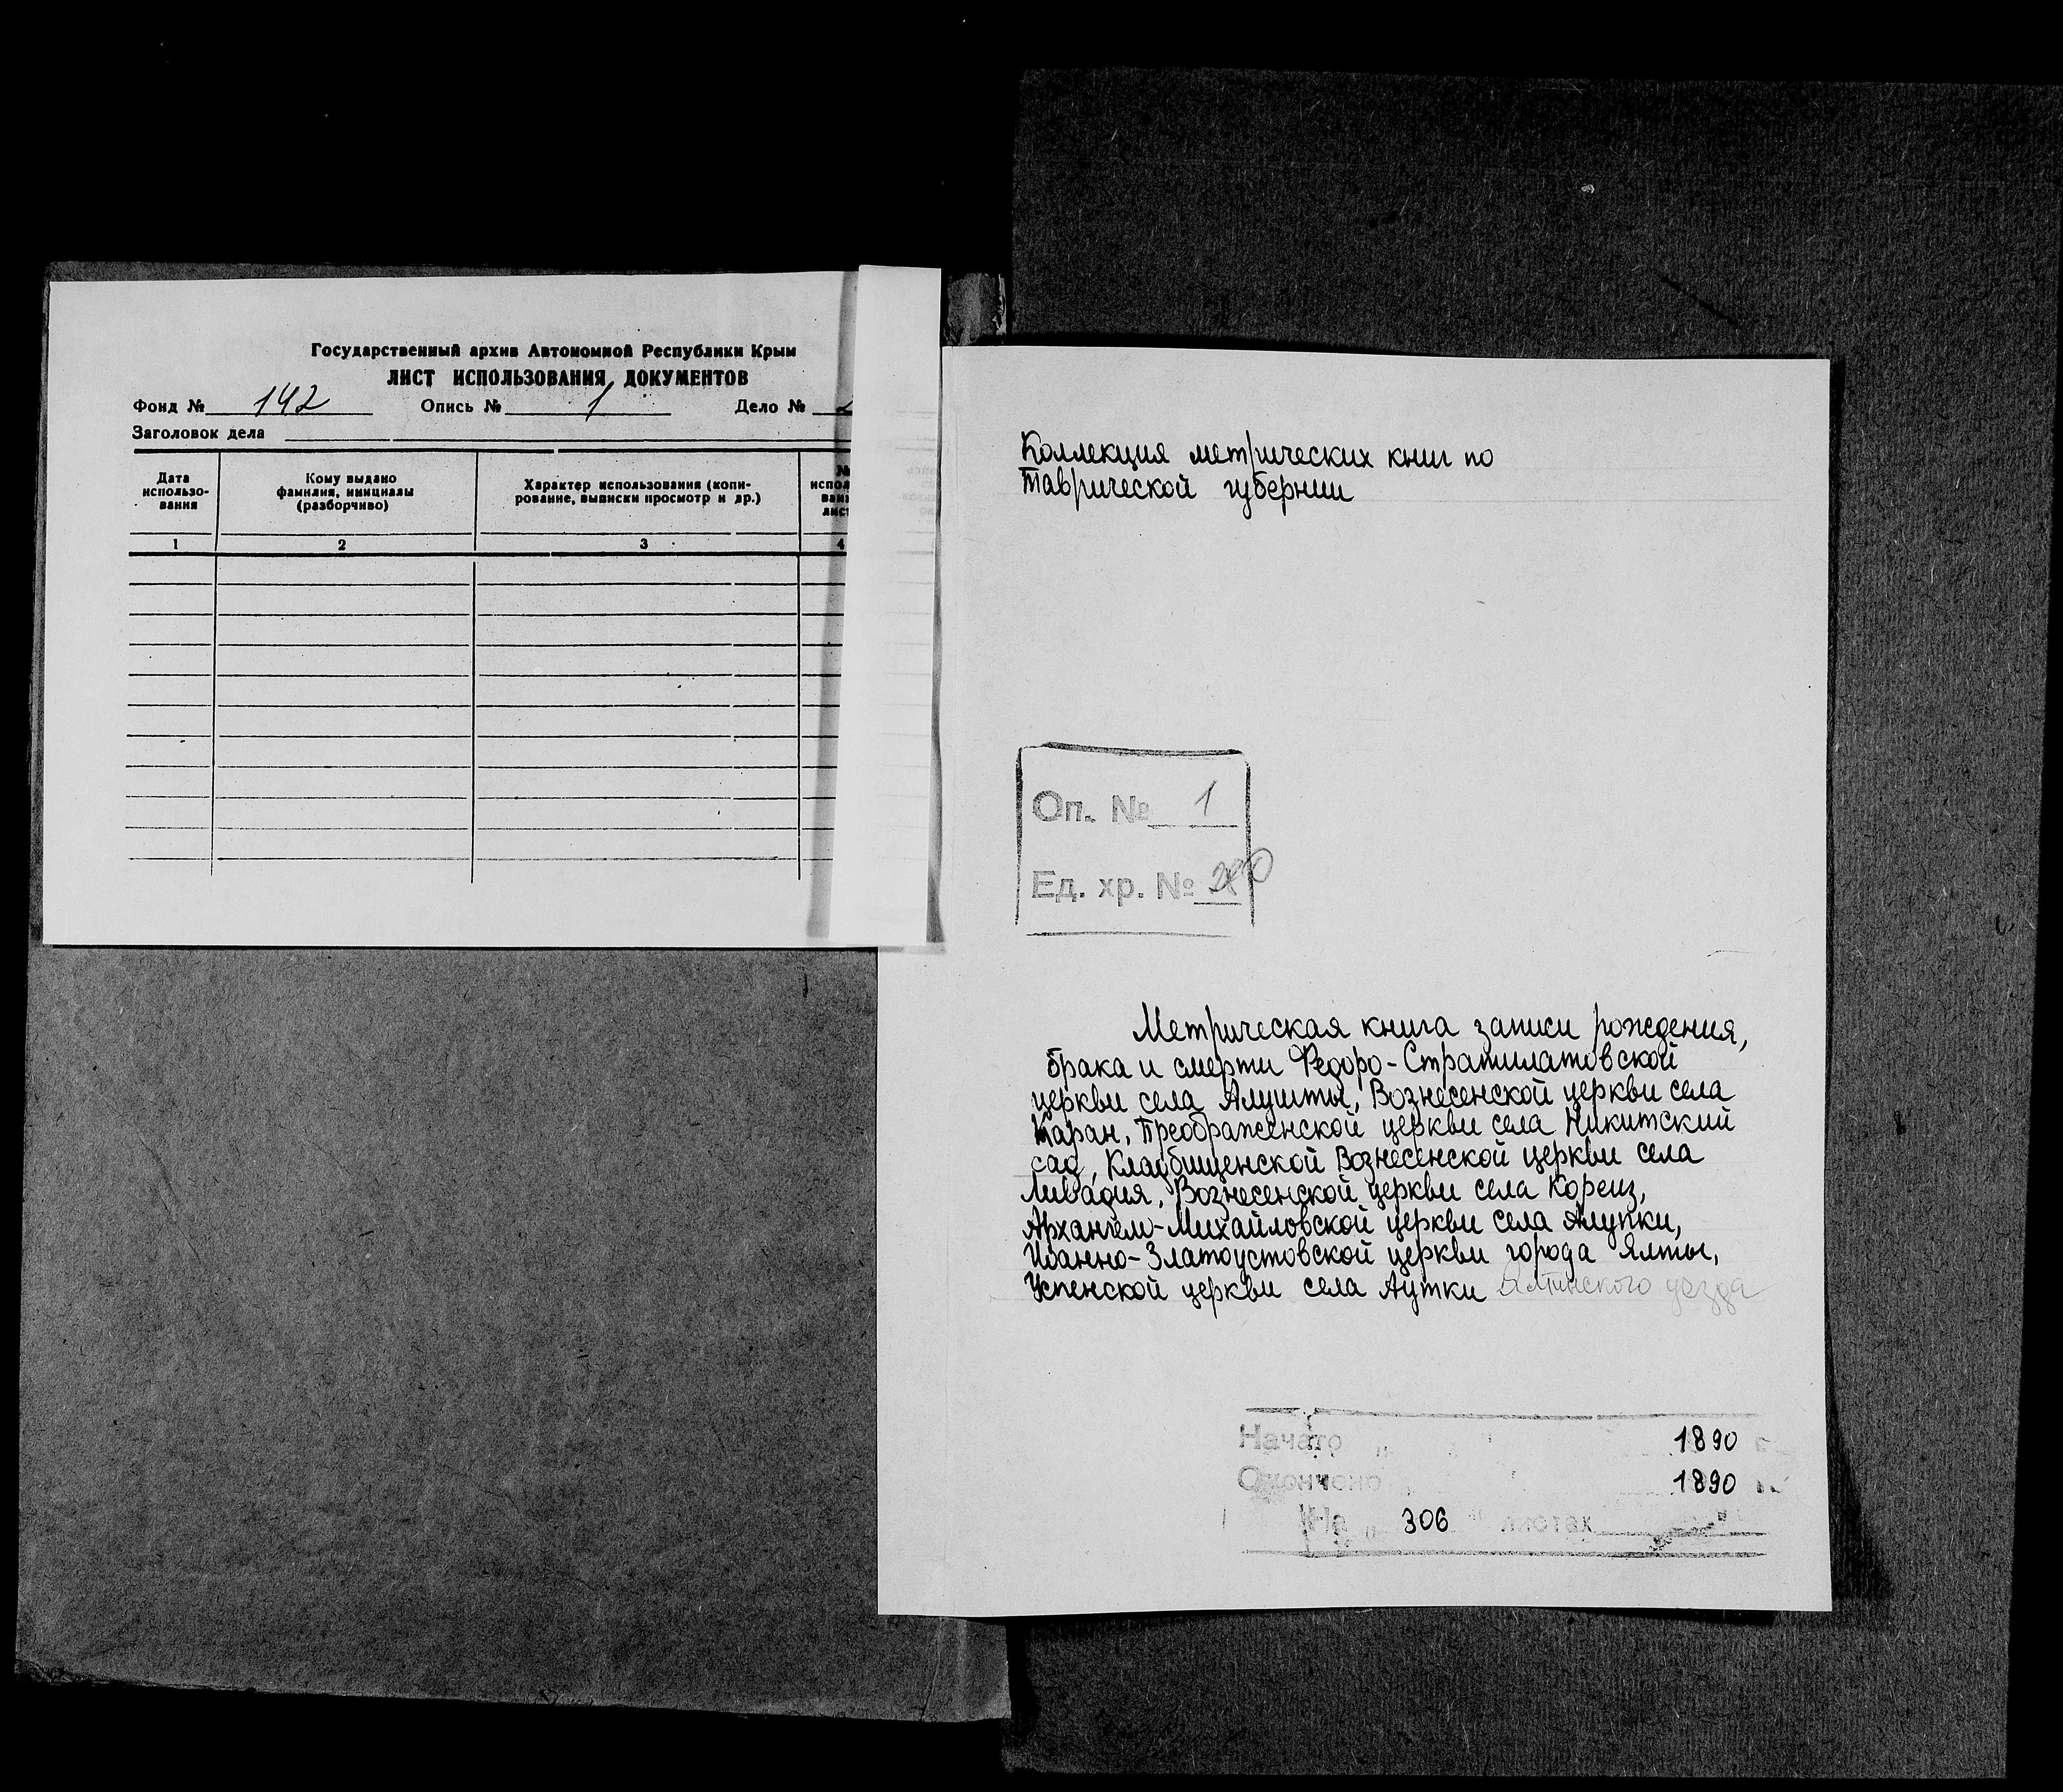 Государственный архив Автономной Республики Крым
ЛИСТ ИСПОЛЬЗОВАНИЯ ДОКУМЕНТОВ
Фонд № 142 Опись № 1 Дело №
Заголовок дела
Дата использо-вания
Кому выдано фамилия, инициалы (разборчиво)
Характер использования (копи-рование, выписки просмотр и др.)
1 2 3 4
Коллекция метрических книг по
Таврической губернии
Оп. № 1
Ед. хр. №
Метрическая книга записи рождения,
брака и смерти Федоро-Стратилатовской
церкви села Алушты, Вознесенской церкви села
Каран, Преображенской церкви села Никитский
сад, Кладбищенской Вознесенской церкви села
Ливадия, Вознесенской церкви села Кореиз,
Архангело-Михайловской церкви села Алупки,
Иоанно-Златоустовской церкви города Ялты,
Успенской церкви села Аутки Ялтинского уезда
Начато 1890
Окончено 1890
На 306 листах